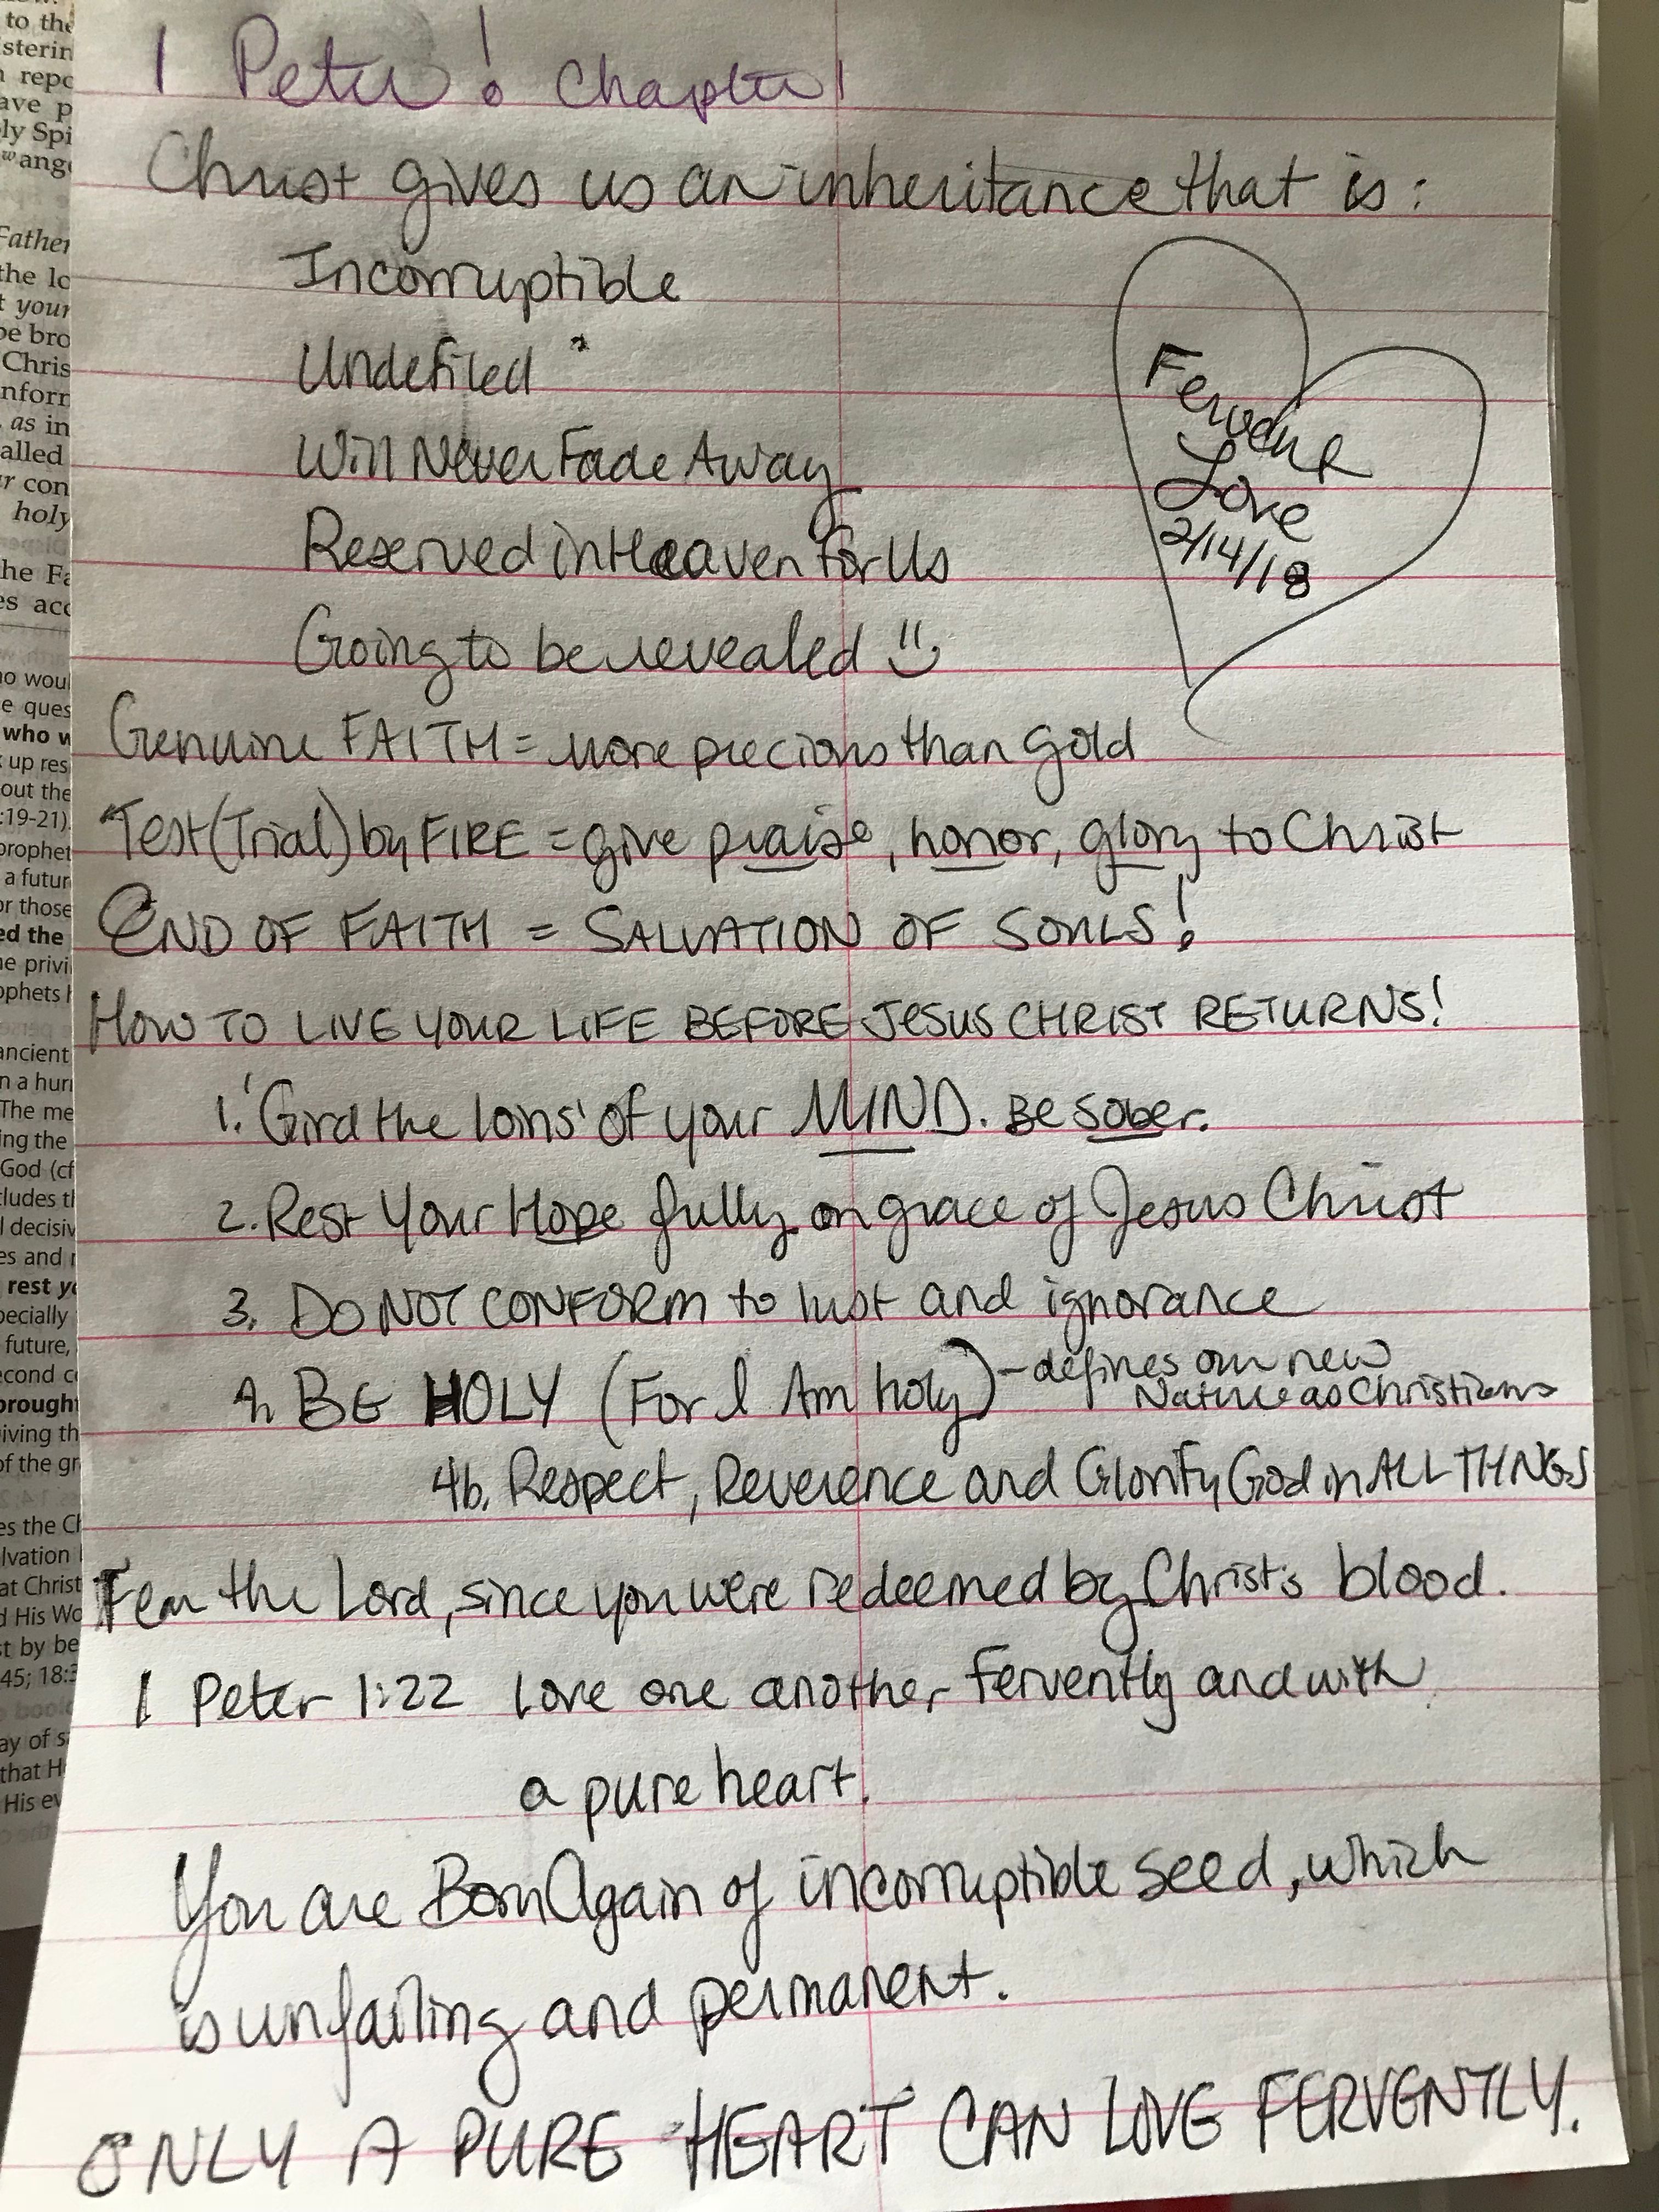 to the
sterin
repo
ave p
ly Spi
wang
Father
the lo
t your
be bro
Chris
nform
as in
alled
r con
holy
he Fa
es acc
o woul
e ques
who w
up res
out the
:19-21).
prophet
a futur
or those
ed the
e privi
ophets h
ancient
n a hurr
The me
ing the
God (cf
cludes th
l decisiv
es and r
rest yo
pecially
future,
econd c
brough
iving th
of the gr
es the Ch
lvation
at Christ
d His Wo
t by be
45; 18:3
ay of s
that H
His ev
1 Peter! Chapter 1
Christ gives us an inheritance that is:
Incorruptible
Undefiled
Will Never Fade Away
Reserved in Heaven for Us
Going to be revealed
Fervent
Love
2/14/18
Genuine FAITH = more precious than gold
Test (Trial) by FIRE = give praise, honor, glory to Christ
END OF FAITH = SALVATION OF SOULS!
HOW TO LIVE YOUR LIFE BEFORE JESUS CHRIST RETURNS!
1. 'Gird the loins' of your MIND. Be sober.
2. Rest Your Hope fully on grace of Jesus Christ
3. DO NOT CONFORM to lust and ignorance
4. BE HOLY (For I Am holy) - defines our new
Nature as Christians
4b. Respect, Reverence and Glorify God in ALL THINGS
Fear the Lord, since you were redeemed by Christ's blood.
1 Peter 1:22 Love one another fervently and with
a pure heart.
You are Born Again of incorruptible seed, which
is unfailing and permanent.
ONLY A PURE HEART CAN LOVE FERVENTLY.